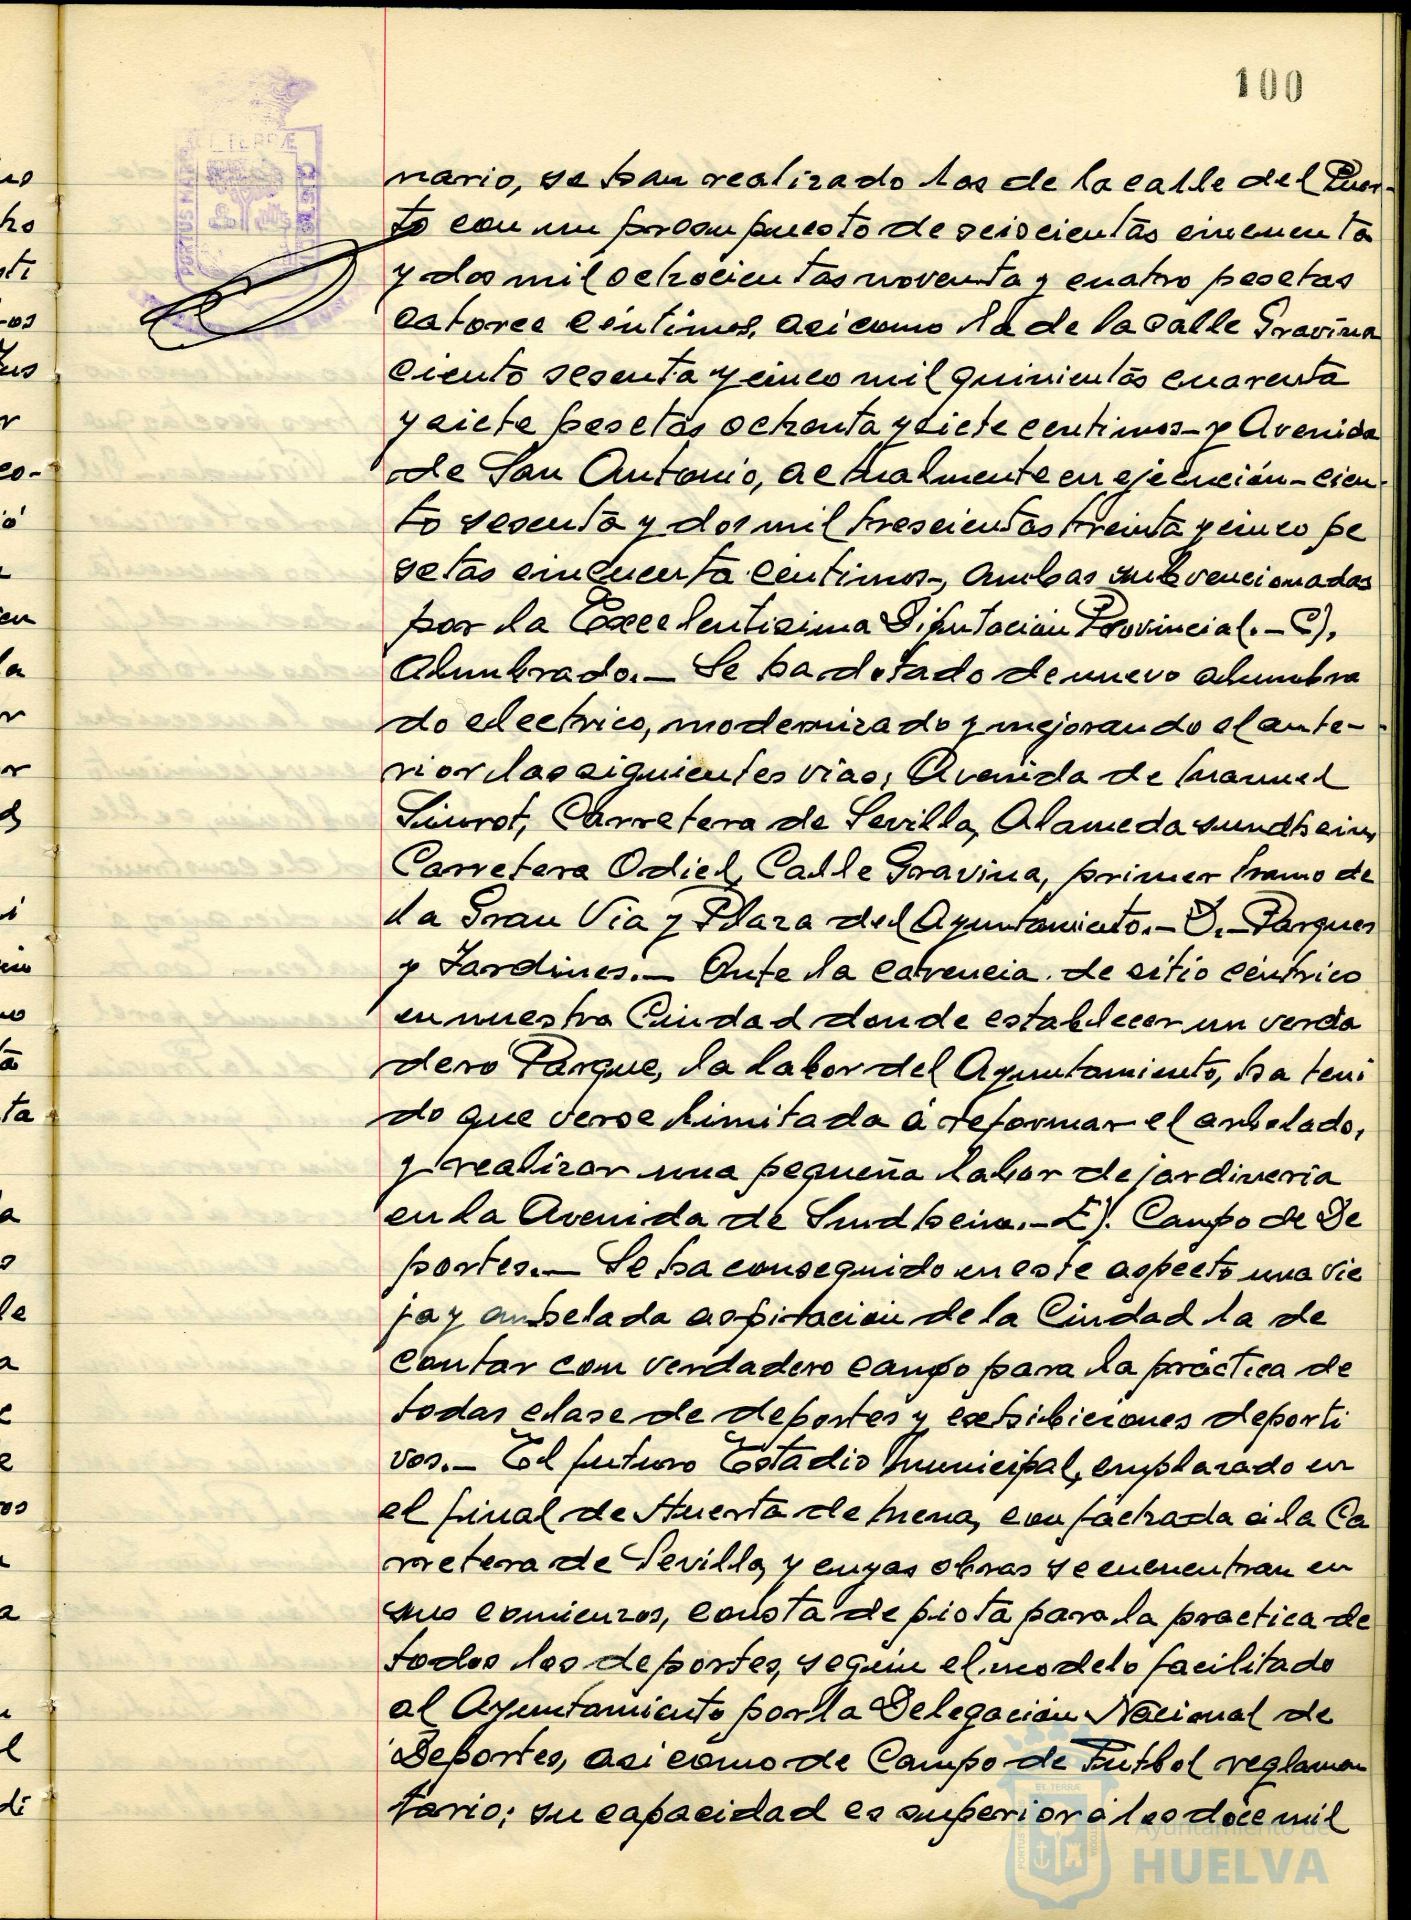 100
nario, se han realizado los de la calle del Puer-
to con un presupuesto de seiscientas cincuenta
y dos mil ochocientas noventa y cuatro pesetas
catorce céntimos, asi como la de la calle Gravina
ciento sesenta y cinco mil quinientas cuarenta
y siete pesetas ochenta y siete centimos- y Avenida
de San Antonio, actualmente en ejecución-cien-
to sesenta y dos mil trescientas treinta y cinco pe
setas cincuenta céntimos-, ambas subvencionadas
por la Excelentisima Diputación Provincial.- C).
Alumbrado.- Se ha dotado de nuevo alumbra
do electrico, modernizado y mejorando el ante-
rior las siguientes vias; Avenida de Manuel
Siurot, Carretera de Sevilla, Alameda Sundheim,
Carretera Odiel, Calle Gravina, primer tramo de
la Gran Via y Plaza del Ayuntamiento.- D.- Parques
y Jardines.- Ante la carencia de sitio céntrico
en nuestra Ciudad donde establecer un verda
dero Parque, la labor del Ayuntamiento, ha teni
do que verse limitada á reformar el arbolado,
y realizar una pequeña labor de jardineria
en la Avenida de Sundheim.- E). Campo de De
portes.- Se ha conseguido en este aspecto una vie
ja y anhelada aspiración de la Ciudad la de
contar con verdadero campo para la práctica de
todas clase de deportes y exhibiciones deporti
vos.- El futuro Estadio Municipal, emplazado en
el final de Huerta de Mena, con fachada á la Ca
rretera de Sevilla, y cuyas obras se encuentran en
sus comienzos, consta de pista para la practica de
todos los deportes, según el modelo facilitado
al Ayuntamiento por la Delegación Nacional de
Deportes, asi como de Campo de Futbol reglamen
tario; su capacidad es superior á los doce mil
Ayuntamiento de
HUELVA